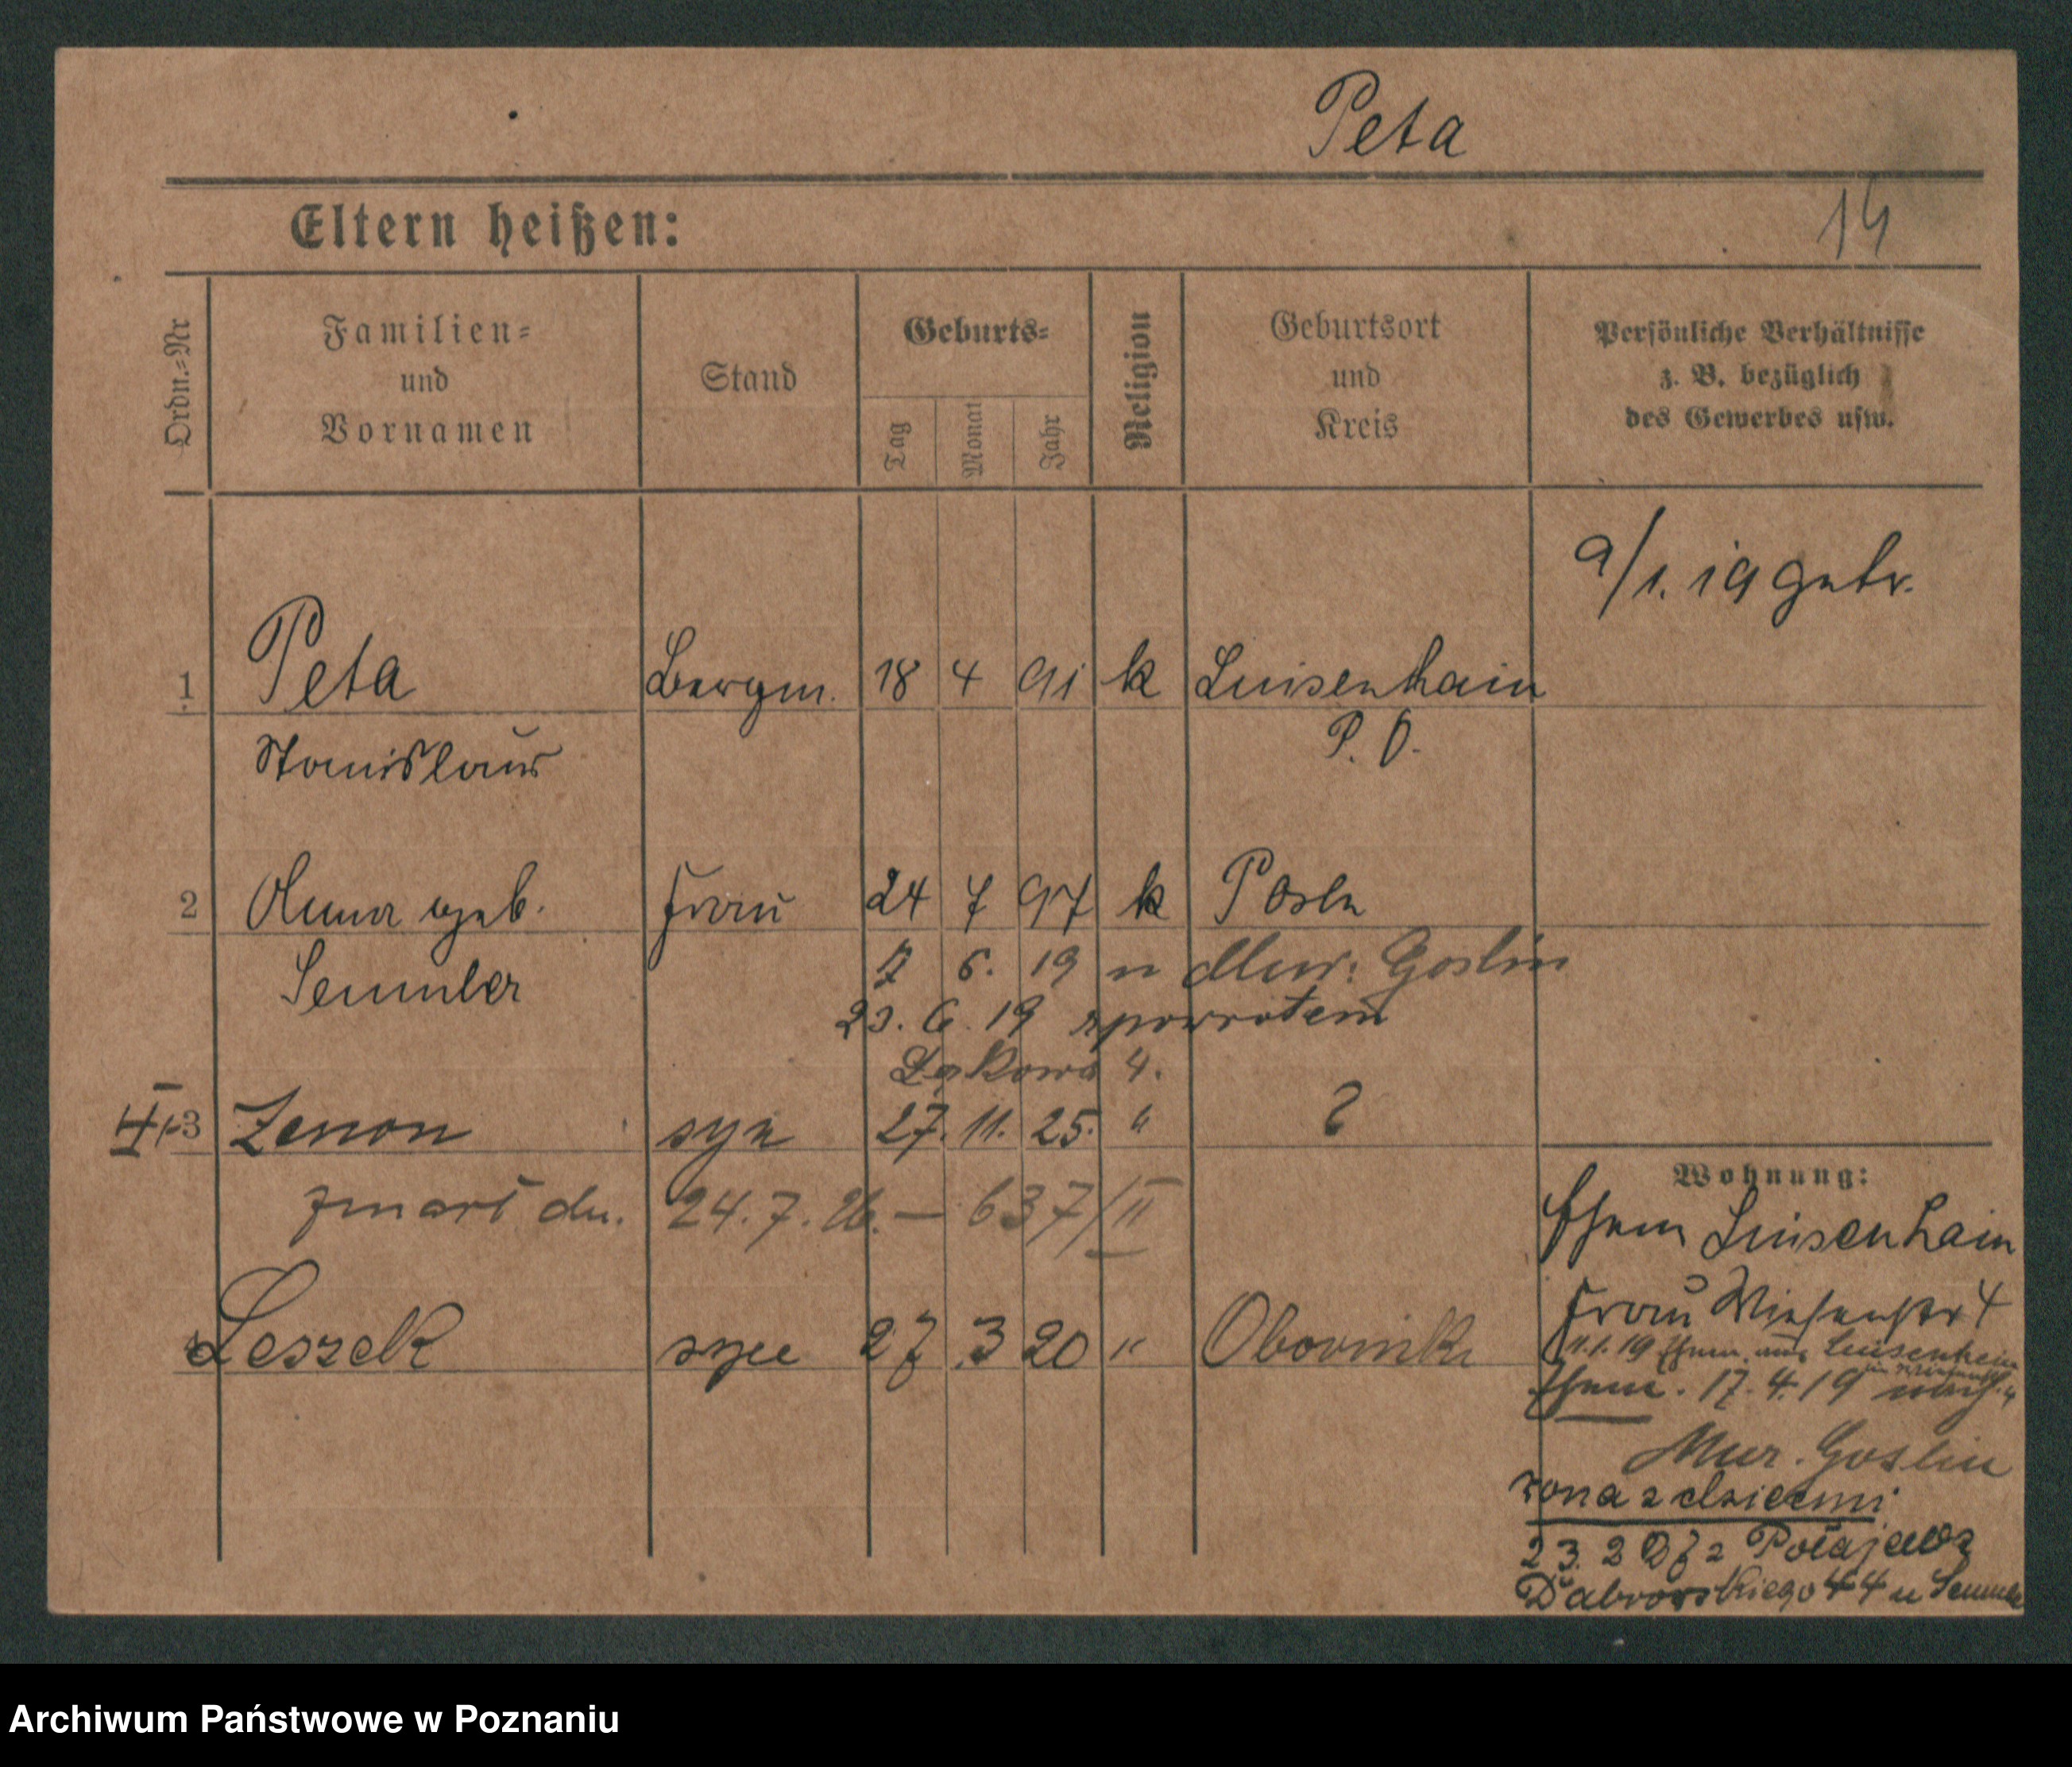 Peta
Eltern heißen:
14
Ordn.=Nr
Familien=
und
Vornamen
Stand
Geburts=
Tag
Monat
Jahr
Religion
Geburtsort
und
Kreis
Persönliche Verhältnisse
z. B. bezüglich
des Gewerbes usw.
9/1. 19 getr.
1 Peta Bergm. 18 4 91 k Luisenhain
P. O.
Stanislaus
2 Anna geb. Frau 24 7 97 k Posen
Semmler
7 6. 19 n Mur. Goslin
23. 6. 19 zpowrotem
Łąkowa 4.
3 Zenon syn 27. 11. 25. "
zmarł dn. 24. 7. 26. — 637/II
Leszek syn 27 3 20 " Obornik
Wohnung:
Ehem Luisenhain
Frau Wiesenstr 4
11.1.19 Ehem. aus Luisenhain
Ehem. 17. 4. 19 nach
Mur. Goslin
żona z dziećmi
23. 2 27 z Połajewa
Dąbrowskiego 44 u Semmler
Archiwum Państwowe w Poznaniu